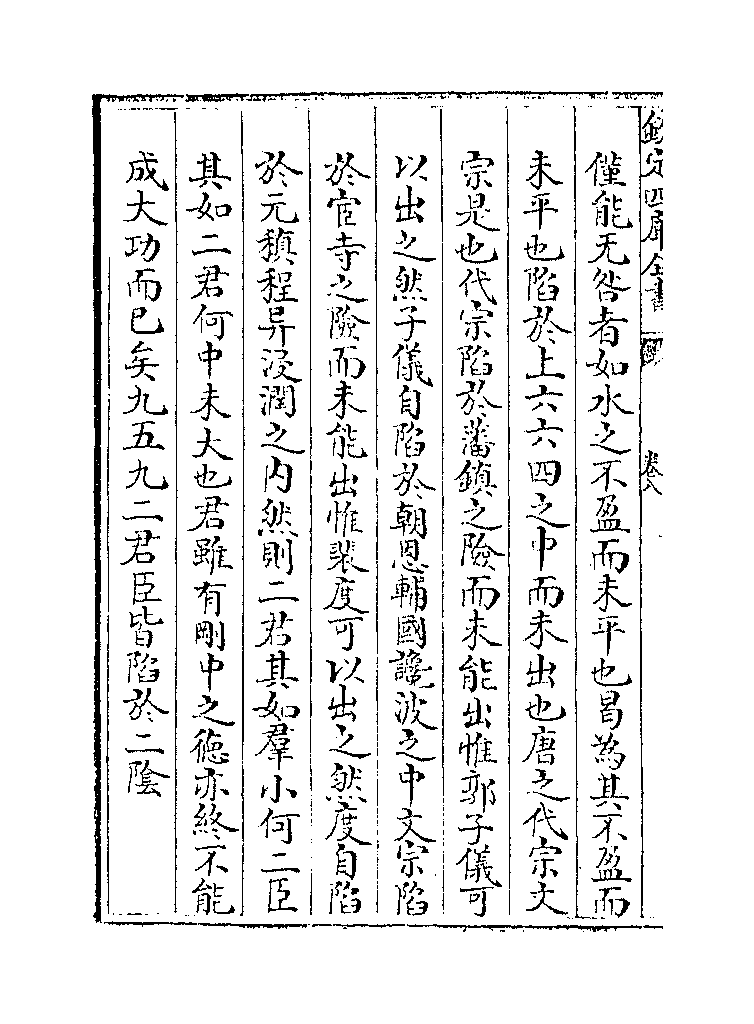 欽定四庫全書
卷八
僅能无咎者如水之不盈而未平也曷為其不盈而
未平也陷於上六六四之中而未出也唐之代宗文
宗是也代宗陷於藩鎮之險而未能出惟郭子儀可
以出之然子儀自陷於朝恩輔國讒波之中文宗陷
於宦寺之險而未能出惟裴度可以出之然度自陷
於元稹程异浸潤之内然則二君其如羣小何二臣
其如二君何中未大也君雖有剛中之徳亦終不能
成大功而已矣九五九二君臣皆陷於二隂